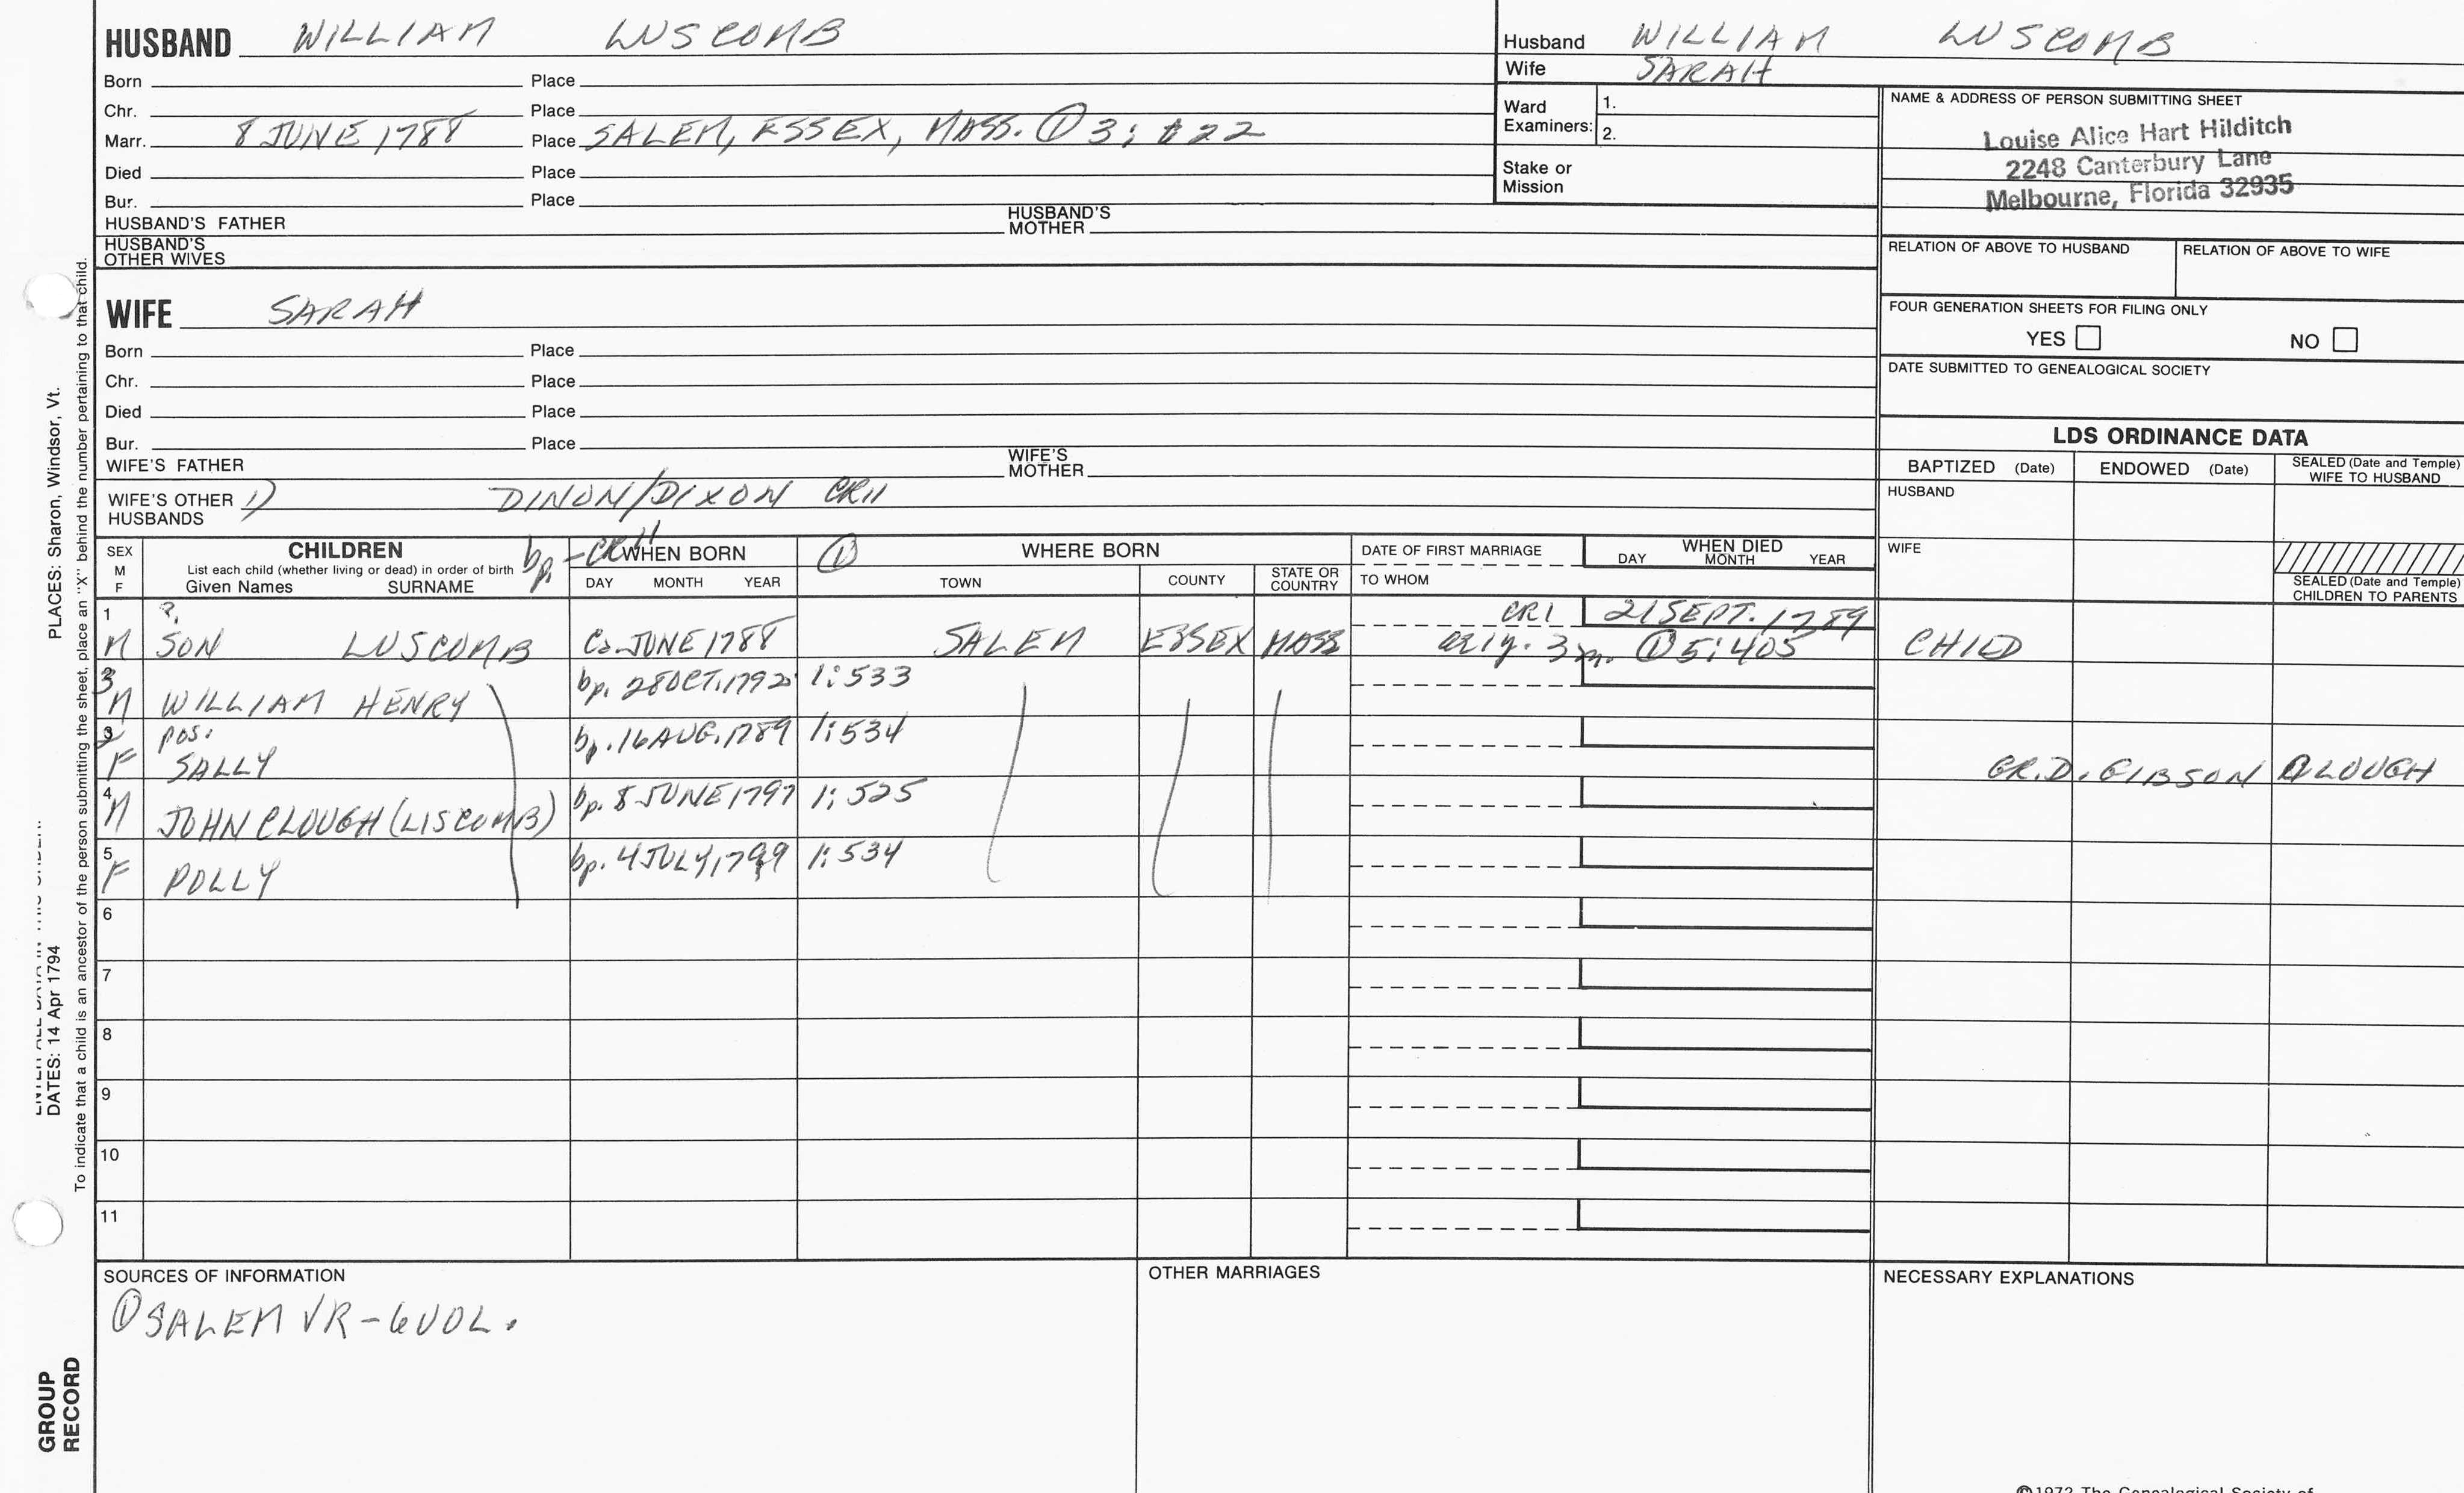 HUSBAND WILLIAM LUSCOMB
Born Place
Chr. Place
Marr. 8 JUNE 1788 Place SALEM, ESSEX, MASS. ① 3: 22
Died Place
Bur. Place
HUSBAND'S FATHER HUSBAND'S MOTHER
HUSBAND'S OTHER WIVES
Husband WILLIAM LUSCOMB
Wife SARAH
Ward Examiners: 1.
2.
Stake or Mission
NAME & ADDRESS OF PERSON SUBMITTING SHEET
Louise Alice Hart Hilditch
2248 Canterbury Lane
Melbourne, Florida 32935
RELATION OF ABOVE TO HUSBAND RELATION OF ABOVE TO WIFE
FOUR GENERATION SHEETS FOR FILING ONLY
YES NO
DATE SUBMITTED TO GENEALOGICAL SOCIETY
WIFE SARAH
Born Place
Chr. Place
Died Place
Bur. Place
WIFE'S FATHER WIFE'S MOTHER
WIFE'S OTHER HUSBANDS 1) DINON/DIXON CR11
LDS ORDINANCE DATA
BAPTIZED (Date) ENDOWED (Date) SEALED (Date and Temple) WIFE TO HUSBAND
HUSBAND
WIFE
SEALED (Date and Temple) CHILDREN TO PARENTS
SEX M F
CHILDREN
List each child (whether living or dead) in order of birth
Given Names SURNAME
bp.-CR11 WHEN BORN
DAY MONTH YEAR
① WHERE BORN
TOWN COUNTY STATE OR COUNTRY
DATE OF FIRST MARRIAGE
TO WHOM
WHEN DIED
DAY MONTH YEAR
1 ? CR1 21 SEPT. 1789
M SON LUSCOMB Ca. JUNE 1788 SALEM ESSEX MASS 3m. ① 5:405 CHILD
3 bp. 28 OCT. 1792 1:533
M WILLIAM HENRY
3 pos. bp. 16 AUG. 1789 1:534
F SALLY GR.D. GIBSON CLOUGH
4 bp. 8 JUNE 1797 1:525
M JOHN CLOUGH (LISCOMB)
5 bp. 4 JULY, 1799 1:534
F POLLY
6
7
8
9
10
11
SOURCES OF INFORMATION
① SALEM VR - 6 VOL.
OTHER MARRIAGES
NECESSARY EXPLANATIONS
PLACES: Sharon, Windsor, Vt.
DATES: 14 Apr 1794
To indicate that a child is an ancestor of the person submitting the sheet, place an "X" behind the number pertaining to that child.
GROUP RECORD